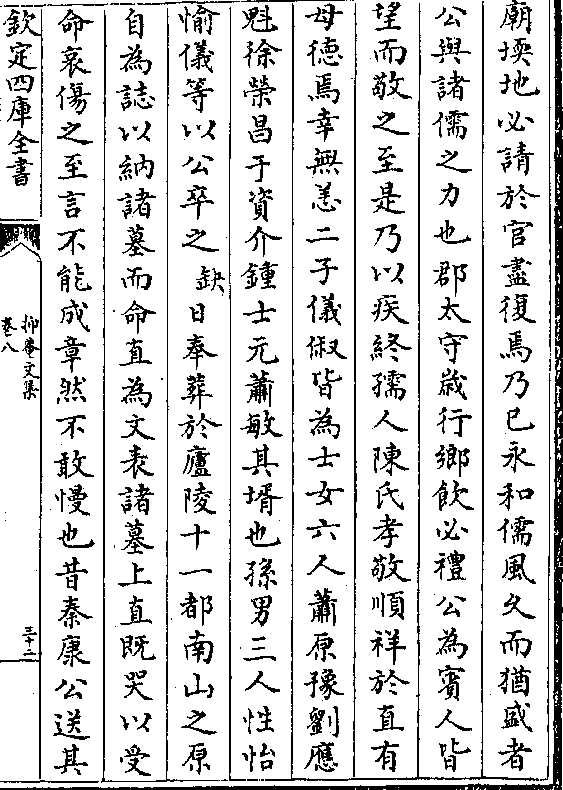 廟堧地必請於官盡復焉乃已永和儒風久而猶盛者
公與諸儒之力也郡太守歲行鄉飲必禮公為賓人皆
望而敬之至是乃以疾終孺人陳氏孝敬順祥於直有
母德焉幸無恙二子儀俶皆為士女六人蕭原豫劉應
魁徐榮昌于資介鍾士元蕭敏其壻也孫男三人性怡
愉儀等以公卒之缺日奉葬於廬陵十一都南山之原
自為誌以納諸墓而命直為文表諸墓上直既哭以受
命哀傷之至言不能成章然不敢慢也昔秦康公送其
欽定四庫全書
抑菴文集
卷八
三十二